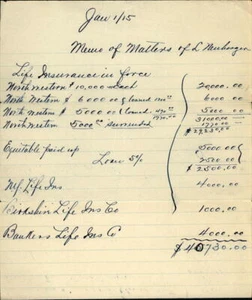 Jan 1/15
Memo of Matters of L
Life Insurance in force
Northwestern 2 10,000 Each 20,000.00
North Western $6000.00 (Loaned 6000.00
North Western $5000.00 (Loaned 5000.00
31000.00
Northwestern 5000.00 surrendered
Equitable paid up 5000.00
Loan 5% 2500.00
$2,500.00
Life Ins 4000.00
Berkshire Life Ins Co 1000.00
Bankers Life Ins Co 4000.00
$40780.00